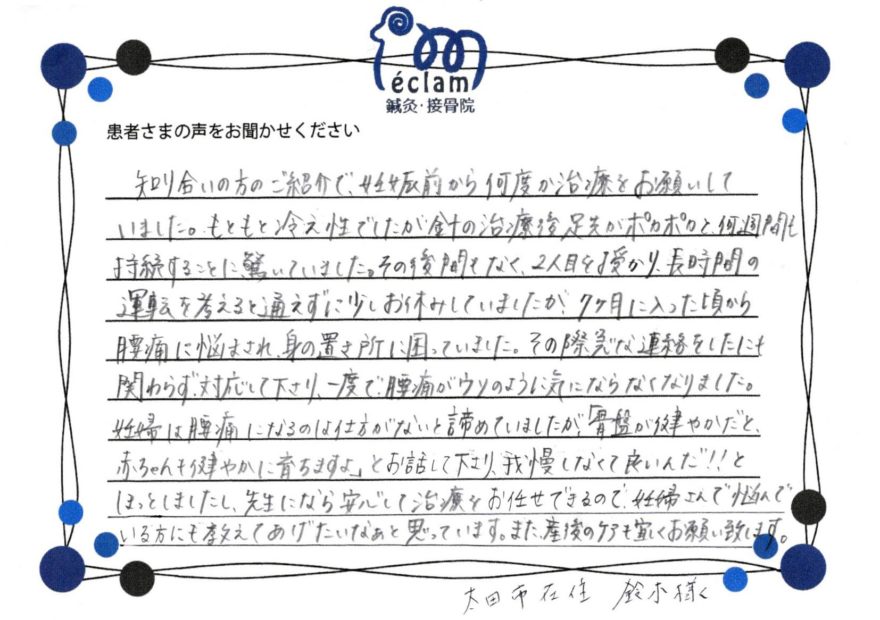 éclam
鍼灸・接骨院
患者さまの声をお聞かせください
知り合いの方のご紹介で、妊娠前から何度か治療をお願いして
いました。もともと冷え性でしたが針の治療後足先がポカポカと、何週間も
持続することに驚いていました。その後間もなく、2人目を授かり、長時間の
運転を考えると通えずに少しお休みしていましたが、7ヶ月に入った頃から
腰痛に悩まされ、身の置き所に困っていました。その際急な連絡をしたにも
関わらず、対応して下さり、一度で腰痛がウソのように気にならなくなりました。
妊婦は腰痛になるのは仕方がないと諦めていましたが、「骨盤が健やかだと、
赤ちゃんも健やかに育ちますよ」とお話して下さり、我慢しなくて良いんだ!!と
ほっとしましたし、先生になら安心して治療をお任せできるので、妊婦さんで悩んで
いる方にも教えてあげたいなぁと思っています。また、産後のケアも宜しくお願い致します。
太田市在住 鈴木様